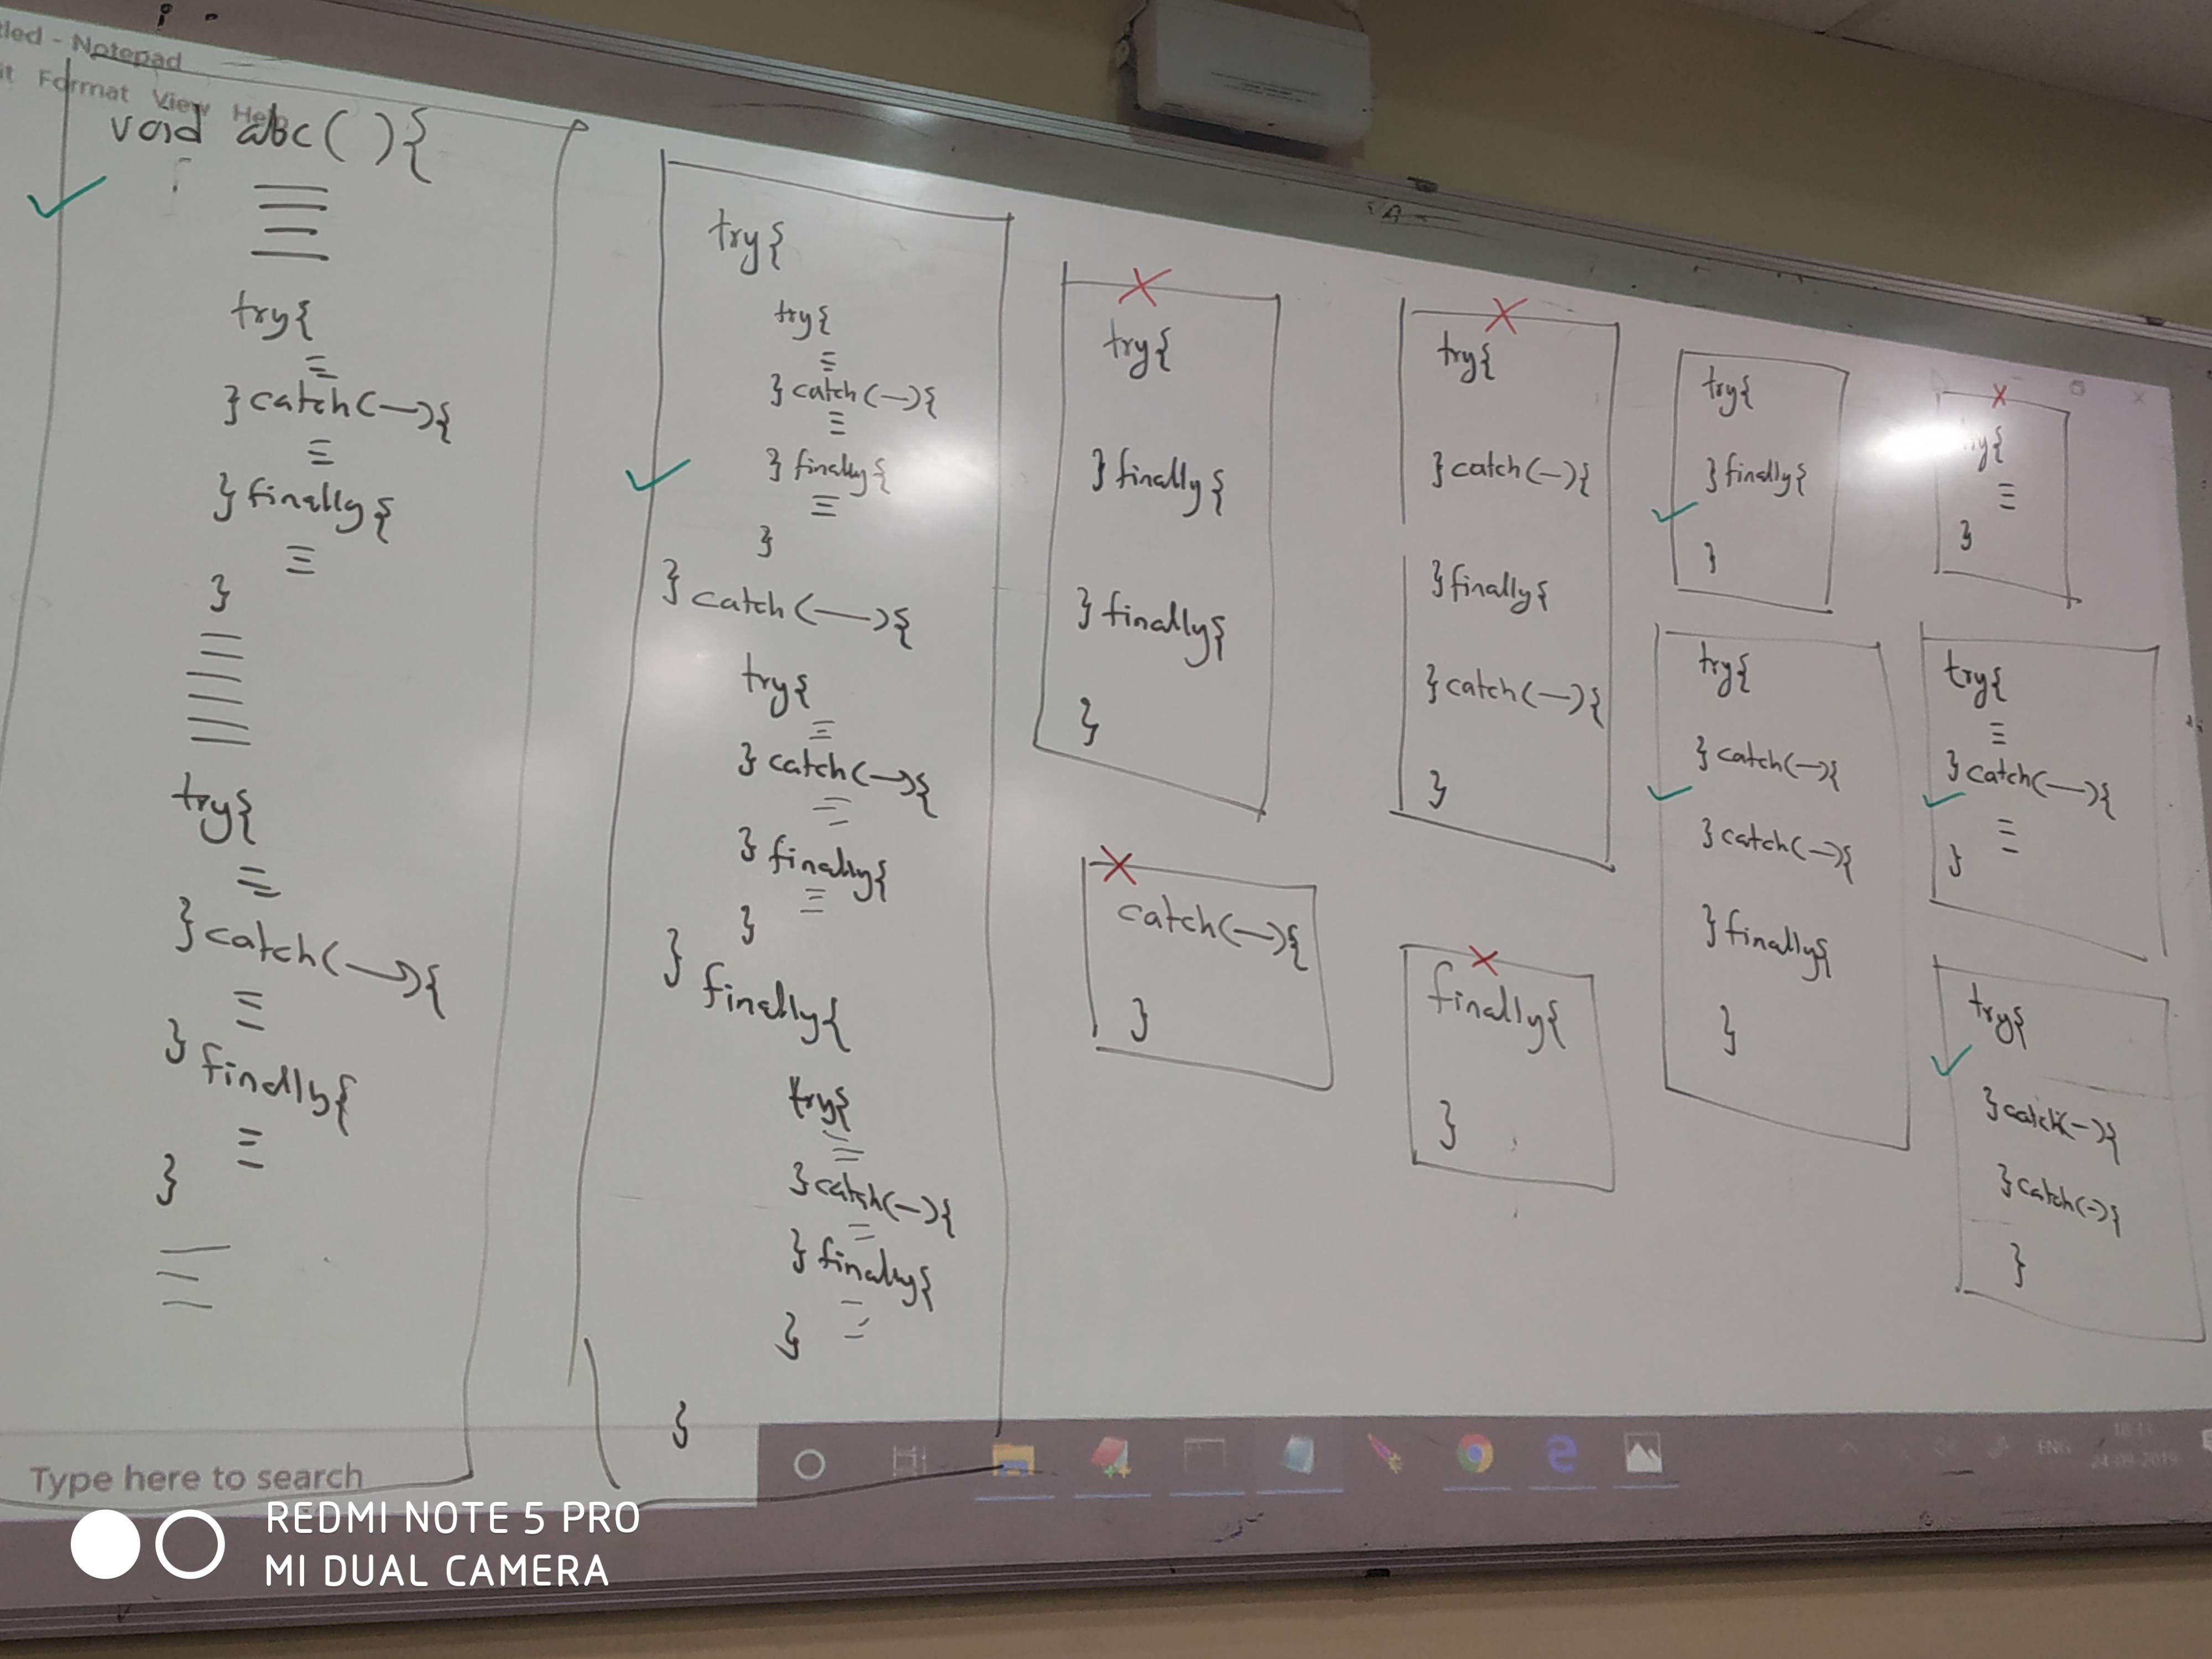 tled - Notepad
it Format View Help
void abc(){
try{
}catch(—){
}finally{
}
try{
}catch(—){
}finally{
}
try{
try{
}catch(—){
}finally{
}
}catch(—){
try{
}catch(—){
}finally{
}
}finally{
try{
}catch(—){
}finally{
}
}
try{
}finally{
}finally{
}
catch(—){
}
try{
}catch(—){
}finally{
}catch(—){
}
finally{
}
try{
}finally{
}
try{
}catch(—){
}catch(—){
}finally{
}
try{
}
try{
}catch(—){
}
try{
}catch(—){
}catch(-){
}
Type here to search
ENG
24-09-2019
REDMI NOTE 5 PRO
MI DUAL CAMERA